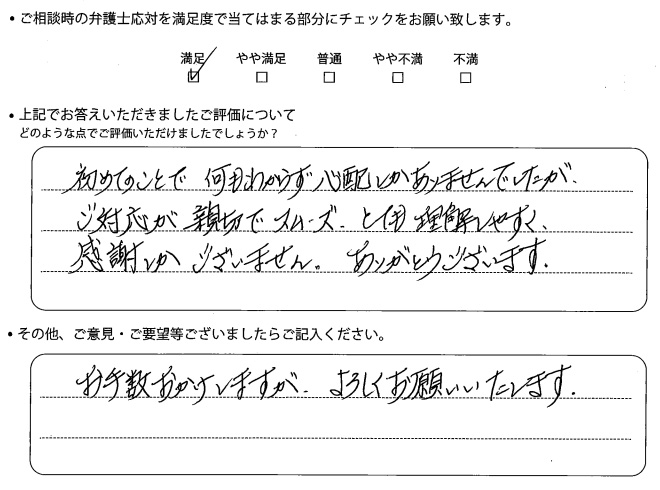 • ご相談時の弁護士応対を満足度で当てはまる部分にチェックをお願い致します。
満足 やや満足 普通 やや不満 不満
☑ □ □ □ □
• 上記でお答えいただきましたご評価について
どのような点でご評価いただけましたでしょうか？
初めてのことで 何もわからず 心配しかありませんでしたが、
ご対応が 親切で スムーズ、とても 理解しやすく、
感謝しか ございません。 ありがとうございます。
• その他、ご意見・ご要望等ございましたらご記入ください。
お手数おかけしますが、よろしくお願いいたします。